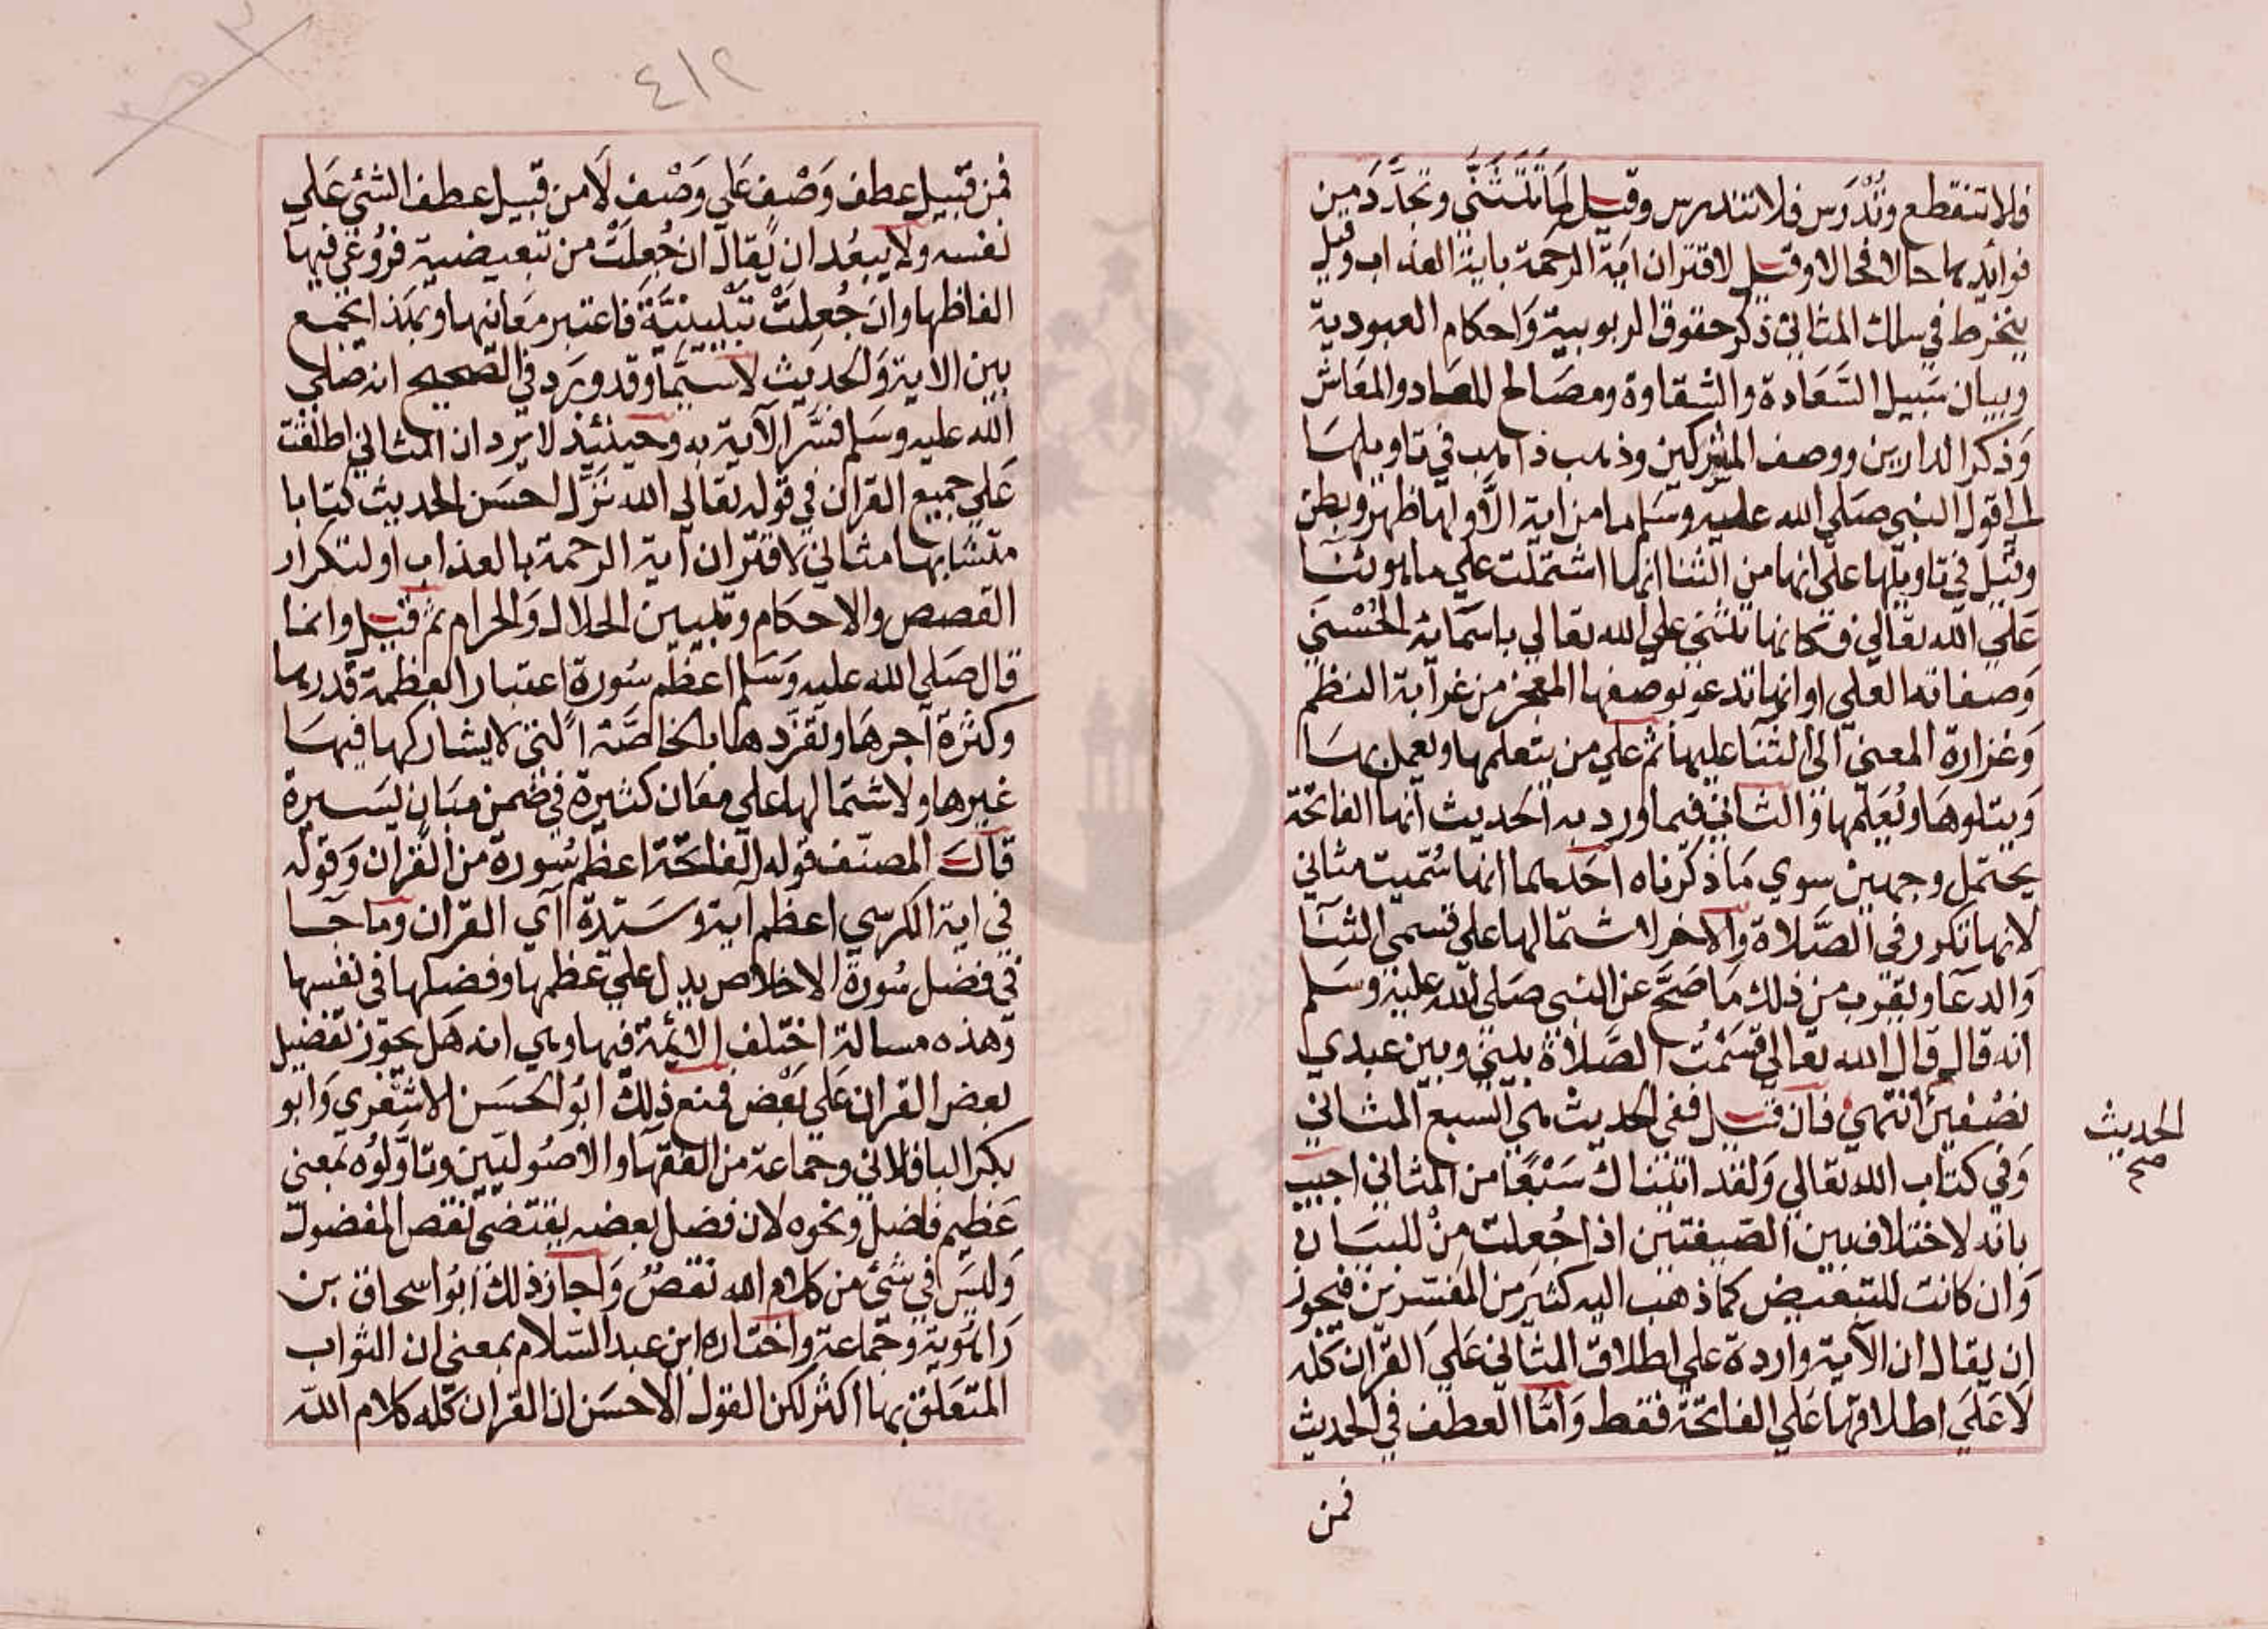 فلا تنقطع وتُدْرَس فلا تندرس وقيل لما تتثنَّي وتجدَّدَ من
فوائدها حالا فحالا وقيل لاقتران اية الرحمة باية العذاب وقيل
ينخرط في سلك المثاني ذكر حقوق الربوبية وَاحكام العبودية
وبيان سَبيل السَّعَادة والشقاوة ومصَالح المعاد والمعَاش
وَذكر الدارين ووصف المشركين وذهب ذاهب في تاويلها
الي قول النبي صَلي الله عليه وسَلم ما من اية الَّا ولها ظهر وبطن
وقيل في تاويلها علَى انها من الثنا انها اشتملت علي ما هو ثنا
عَلي الله تعَالي فكانها تثني علي الله تعالي باسمَائه الحُسْني
وَصفاته العلي او انها تدعو بوصفها المعجز من غرابة النظم
وَغزارة المعني الي الثنا عليها ثم علي من يتعلمها ويعمل بها
وَيتلوهَا ويُعَلّمها وَالثاني فيما ورد به الحديث انها الفاتحة
يحتمل وجهين سوي مَا ذكرناه احَدهما انها سُمّيت مثاني
لانها تكرر في الصَّلاة وَالاخر لاشتمالها علي قسمي الثنَا
وَالدعَا ويقرب من ذلك مَا صَحَّ عن النبي صَلي الله عليه وسَلم
انه قال قال الله تعَالي قسَمْتُ الصَّلاة بيني وبين عبدي
نصْفين انتهي فان قيل ففي الحديث هي السبع المثاني
الحديث
صح
وَفي كتاب الله تعالي وَلقد اتيناك سَبْعًا من المثاني اجيب
بانه لا اختلاف بين الصّيغتين اذا جُعِلت مِنْ للبيَان
وَان كانت للتبعيض كما ذهب اليه كثير من المفسّرين فيجوز
ان يقال ان الآية واردة علي اطلاق المثاني عَلي القران كله
لَا عَلَي اطلاقها عَلي الفاتحة فقط وَامَّا العطف في الحديث
فمن
٤١٢
فمن قبيل عطف وَصْفٍ عَلي وَصْف لَا من قبيل عطف الشئ عَلي
نفسه ولا يبعُد ان يُقال ان جُعِلَتْ من تبعيضية فرُوعي فيها
الفاظها وان جُعِلَتْ تبْيينيَّةً فاعتبر معَانيها وبهذا يجمع
بين الاية وَالحديث لاسيمَا وقد ورَد في الصحيح انه صَلي
الله عليه وسَلم فسَّر الآية به وحينئذ لا يَرد ان المثاني اطلقت
عَلي جميع القران في قوله تعالي الله نزَّل احسَن الحديث كتابا
متشابها مثاني لاقتران آية الرحمة بالعذاب او لتكرار
القصص والاحكام وتبيين الحلال وَالحرام ثم قيل وانما
قال صَلي الله عليه وَسَلم اعظم سُورة اعتبار العظمة قدرها
وكثرة اجرهَا وتفرّدها بالخاصَّة التي لا يشاركها فيهَا
غيرها ولاشتمالها علي معَان كثيرة في ضمن مبَانٍ يَسيرة
قال المصنف قوله الفاتحة اعظم سُورة من القران وَقوله
في اية الكرسي اعظم آية وسَيّدة آي القران وما جَا
في فضل سُورة الاخلاص يدل علي عظمها وفضلها في نفسها
وَهذه مسالة اختلف الائمّة فيها وهي انه هَل يجوز تفضيل
بعض القران عَلي بَعْض فمنع ذلك ابُو الحسَن الاشعَري وَابو
بكر الباقلاني وجماعة من الفقها والاصُوليّين وتاوّلوُه بمعني
عَظيم فاضل ونحوه لان فضل بعضه يقتضي نقص المفضول
وَليسَ في شئ من كلام الله نقصٌ وَاجاز ذلك ابُو اسحاق بن
رَاهَوية وجَمَاعة واختاره ابن عبد السّلام بمعني ان الثواب
المتعَلق بها اكثر لكن القول الاحسَن ان القران كله كلام الله